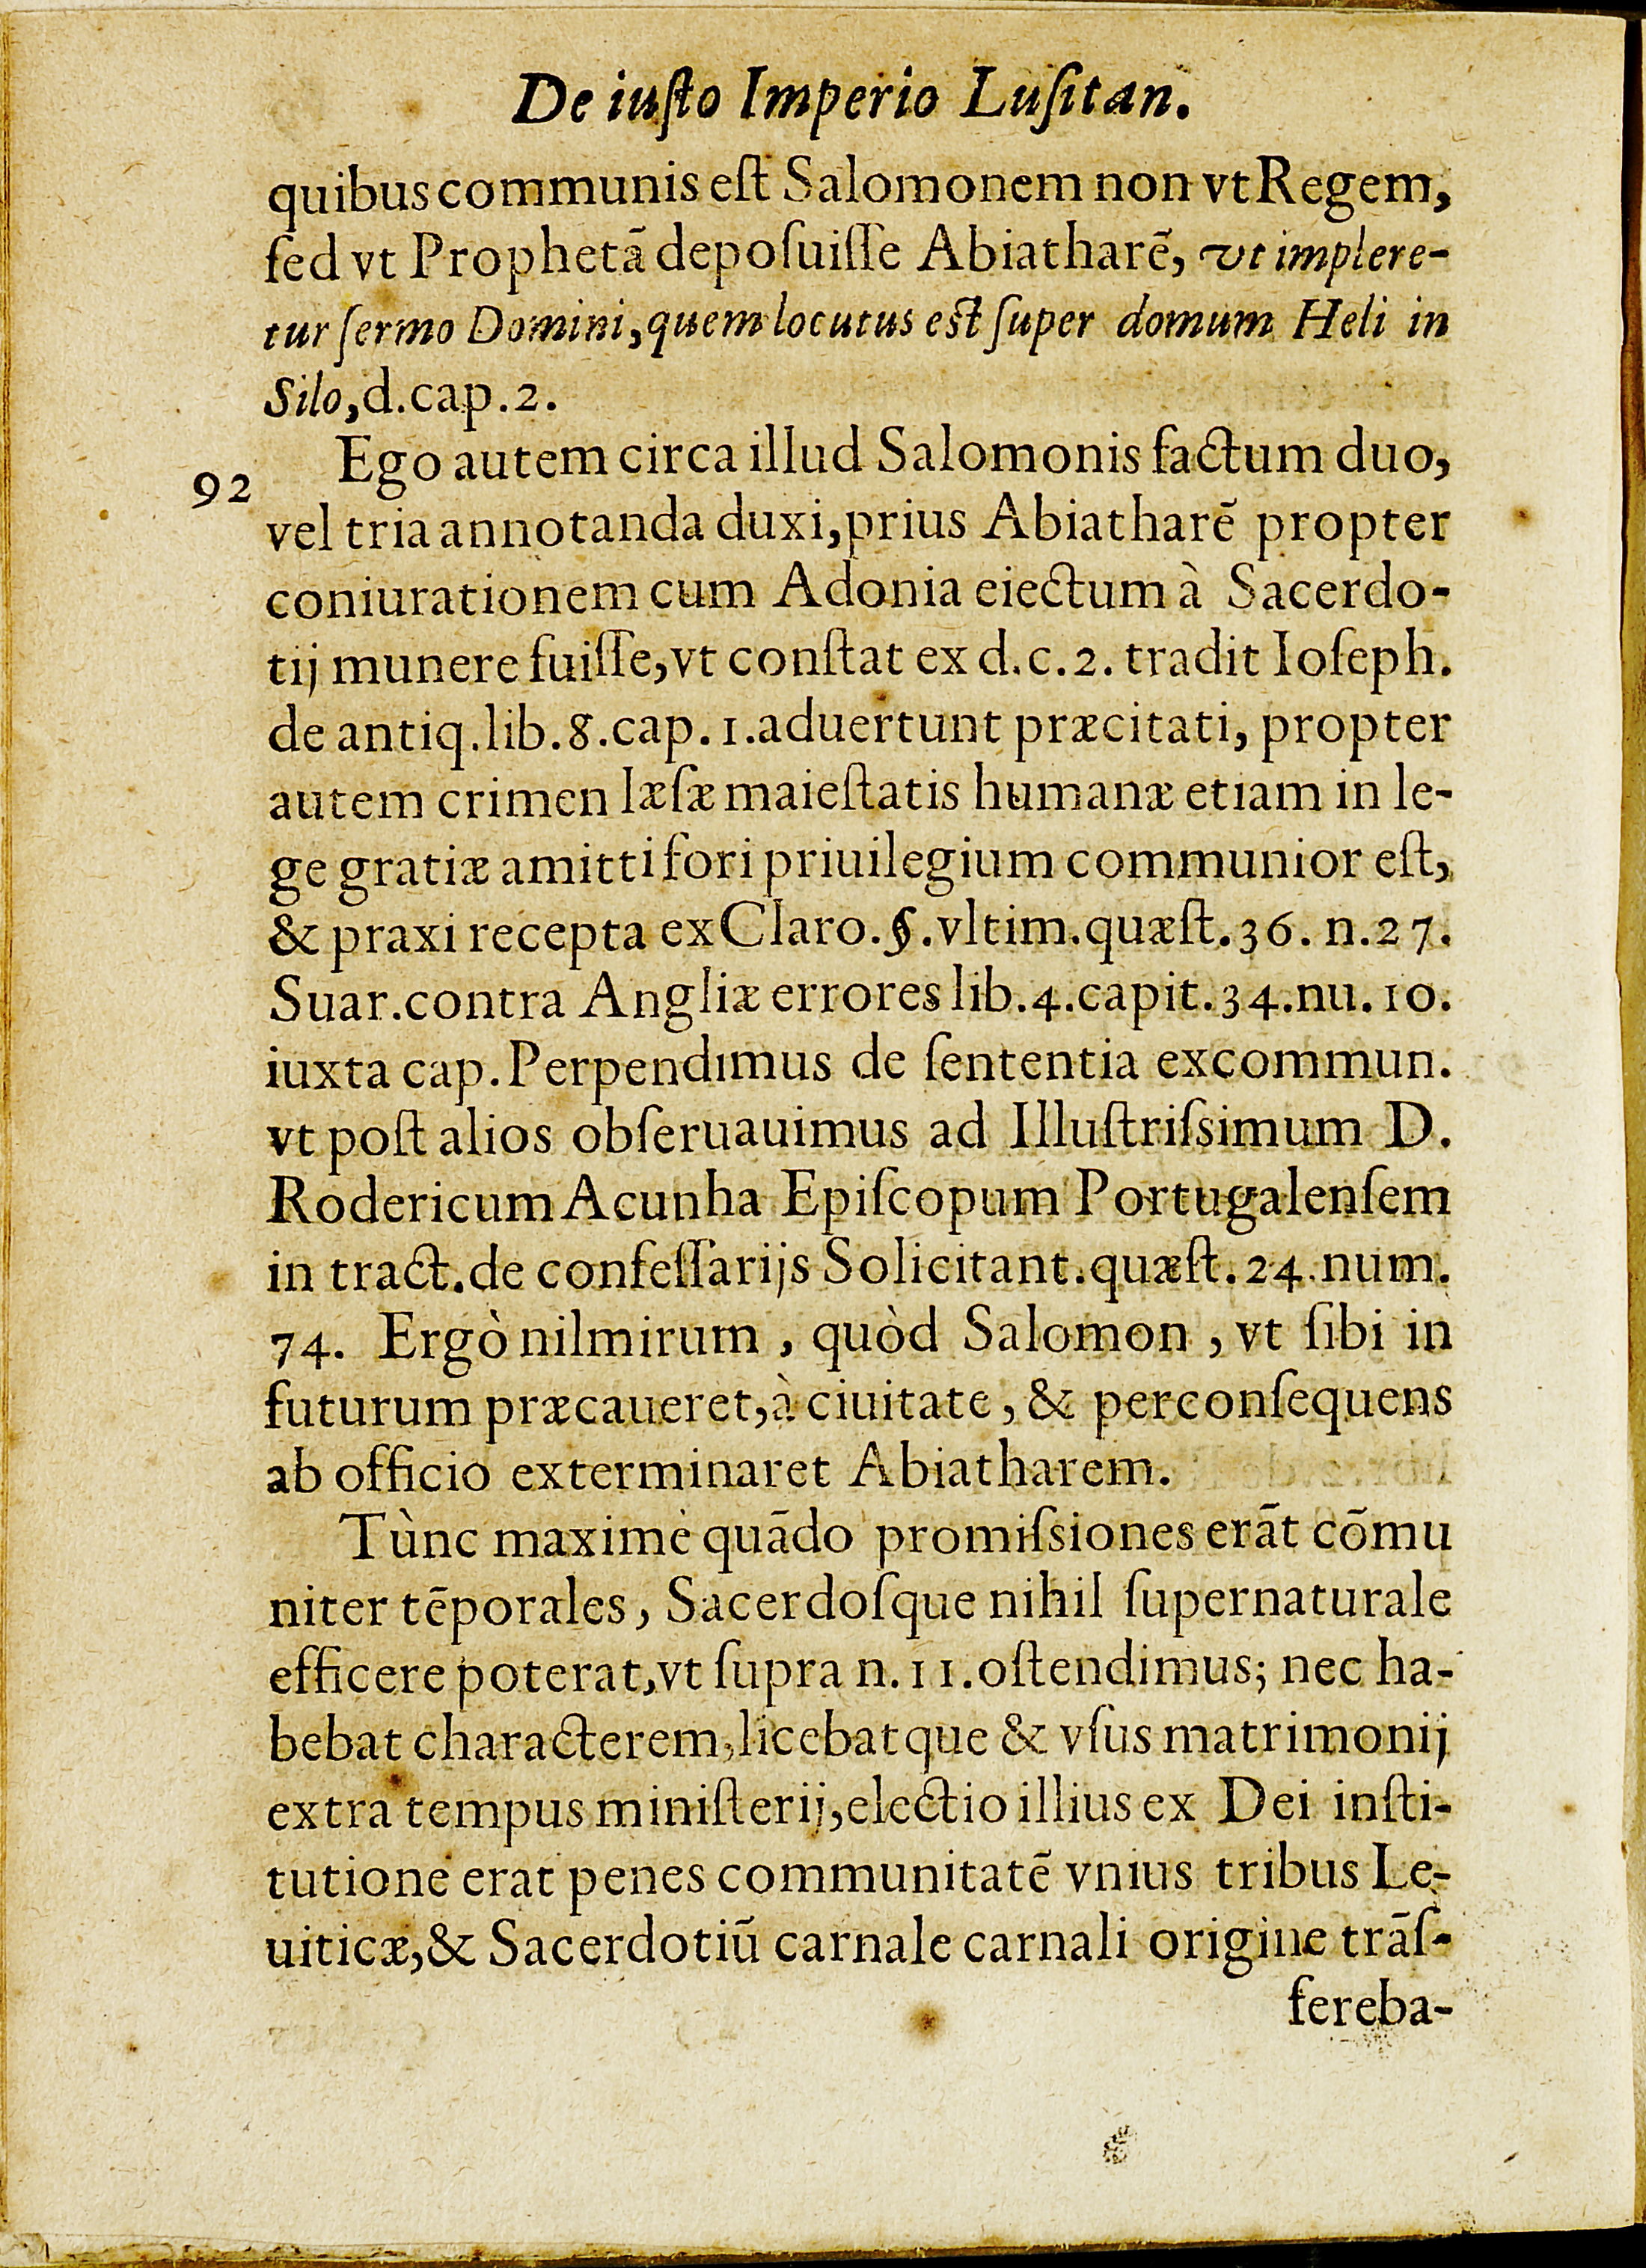 De iuſto Imperio Luſitan.
quibus communis eſt Salomonem non vt Regem,
ſed vt Prophetā depoſuiſſe Abiatharē, vt implere-
tur ſermo Domini, quem locutus eſt ſuper domum Heli in
Silo, d. cap. 2.
92 Ego autem circa illud Salomonis factum duo,
vel tria annotanda duxi, prius Abiatharē propter
coniurationem cum Adonia eiectum à Sacerdo-
tij munere fuiſſe, vt conſtat ex d. c. 2. tradit Ioſeph.
de antiq. lib. 8. cap. 1. aduertunt præcitati, propter
autem crimen læſæ maieſtatis humanæ etiam in le-
ge gratiæ amitti fori priuilegium communior eſt,
& praxi recepta ex Claro. §. vltim. quæſt. 36. n. 27.
Suar. contra Angliæ errores lib. 4. capit. 34. nu. 10.
iuxta cap. Perpendimus de ſententia excommun.
vt poſt alios obſeruauimus ad Illuſtriſsimum D.
Rodericum Acunha Epiſcopum Portugalenſem
in tract. de confeſſarijs Solicitant. quæſt. 24. num.
74. Ergò nil mirum, quòd Salomon, vt ſibi in
futurum præcaueret, à ciuitate, & per conſequens
ab officio exterminaret Abiatharem.
Tùnc maximè quādo promiſsiones erāt cōmu
niter tēporales, Sacerdoſque nihil ſupernaturale
efficere poterat, vt ſupra n. 11. oſtendimus; nec ha-
bebat characterem, licebatque & vſus matrimonij
extra tempus miniſterij, electio illius ex Dei inſti-
tutione erat penes communitatē vnius tribus Le-
uiticæ, & Sacerdotiū carnale carnali origine trāſ-
fereba-